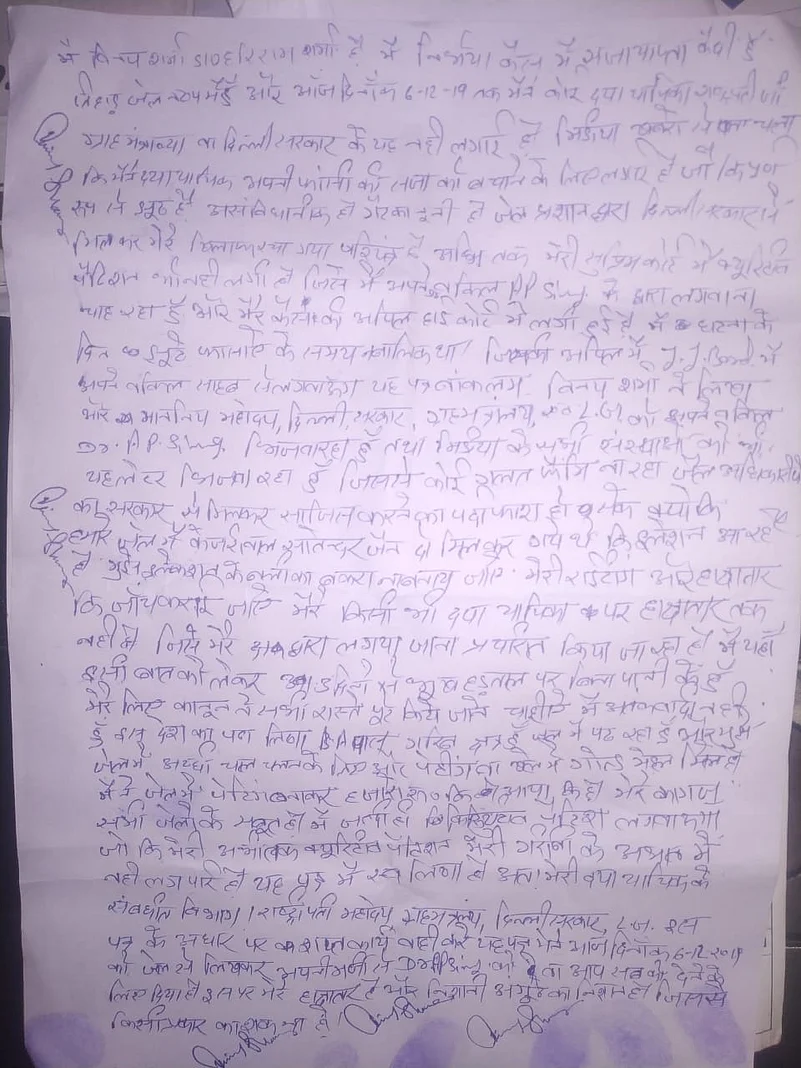 मै विनय शर्मा S/O हरिराम शर्मा है मै निर्भया कैस मैं सजायाफ्ता कैदी हूँ
तिहाड़ जेल में हूँ और आज दिनाँक 6-12-19 तक मैने कोइ दया याचिका राष्ट्रपती जी
ग्रहमंत्रालय वा दिल्ली सरकार के यह नही लगाई है मिडीया से पता चला
कि मैने दया याचिक अपनी फांसी की सजा को बचाने के लिए लगाई है जो कि पुर्ण
रूप से झुठ है असंविधानीक है गैरकानुनी है जेल प्रशासन द्वारा दिल्ली सरकार ने
मिलकर मेरे खिलाफ रचा गया है अभि तक मेरी सुप्रिम कोर्ट में क्युरिटिव
पैटिशन भी नही लगी है जिसे मैं अपने वकिल A.P. Singh. के द्वारा लगवाना
चाह रहा हूँ और मेरे कैस की अपिल हाइ कोर्ट में लगी हुई है मैं घटना के
दिन झुठे फसाऐ के समय नबालिक था। जिसकी अपिल मैं J.J. Board में
अपने वकिल साहब से लगवाऊंगा यह पत्र विनय शर्मा ने लिखा
और माननिय महोदय, दिल्ली, सरकार, ग्रहमंत्रालय, L.G. को अपने वकिल
Dr. A.P. Singh. भिजवा रहा हूँ तथा मिडिया के सभी संस्थाओ को भी
पहले भिजवा रहा हूँ जिससे कोई गलत ना रहा जेल अधिकारीयो
का सरकार से मिलकर साजिस करने का पर्दा फाश हो सके क्योकि
हमारे जेल में केजरीवाल सतेन्दर जैन दो मिलकर गये थे कि इलेशन आ रहे
है मुझे इलेक्शन के बली का बकरा ना बनाया जाऐ. मेरी राइटिंग और हस्ताक्षर
कि जाँच कराइ जाऐ मेरे किसी भी दया याचिका पर हस्ताक्षर तक
नही है जिसे मेरे द्वारा लगाया जाना प्रचारित किया जा रहा है मैं यहाँ
इसी बात को लेकर दिनो से भूख हड़ताल पर बिना पानी के हूँ
मेरे लिए कानून के सभी रास्ते पुरे किये जाने चाहीऐ मैं आतंकवादी नही
हूँ इस देश का पढा लिखा गरिब हूँ जेल में पढ रहा हूँ और मुझे
जेल में अच्छी चाल चलन के लिए और पेटींग वा खेल में गोल्ड मेडल मिले है
मैंने जेल में पेटिंग बनाकर हजारो रू० मेरे कागज
सभी जेलो के सबूत है मैं जल्दी ही क्युरिटिव पैटिशन लगवाऊंगा
जो कि मेरी अभीतक क्युरिटिव पैटिशन मेरी गरीबी के अभाव में
नही लग पाई है यह पत्र मैं लिखा है अतः मेरी दया याचिका के
संबधीत विभाग। राष्ट्रपती महोदय, ग्रहमंत्रालय, दिल्ली सरकार, L.G. इस
पत्र के आधार पर कार्य वाही करे यह पत्र मैने आज दिनाँक 6-12-2019
को जेल से लिखकर अपनी मर्जी से को वा आप सब को देने के
लिए दिया है इस पर मेरे हस्ताक्षर है और निशानी अगुठे का निशान है जिससे
किसी प्रकार का शक ना हो।